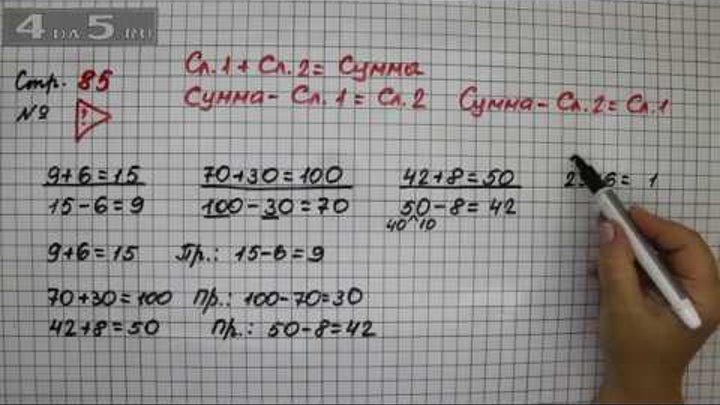 4 на 5.RU
Стр. 85
№
!
Сл.1 + Сл.2 = Сумма
Сумма - Сл.1 = Сл.2 Сумма - Сл.2 = Сл.1
9+6=15 70+30=100 42+8=50
15-6=9 100-30=70 50-8=42
40 10
9+6=15 Пр.: 15-6=9
70+30=100 Пр.: 100-70=30
42+8=50 Пр.: 50-8=42